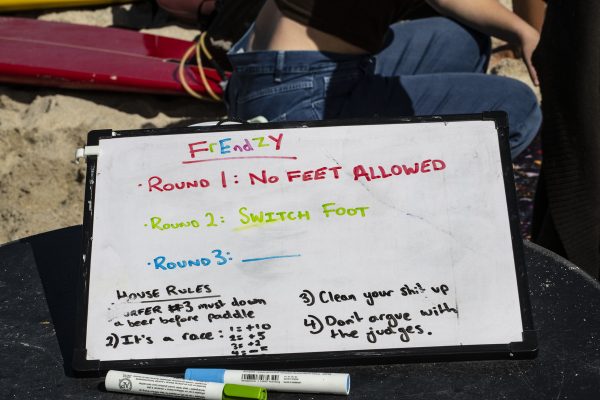 FrEndZY
· ROUND 1: NO FEET ALLOWED
· ROUND 2: SWITCH FOOT
· ROUND 3:
HOUSE RULES
SURFER #3 must down
a beer before paddle
2) It's a race: 1= +10
3) Clean your shit up
4) Don't argue with
the judges.